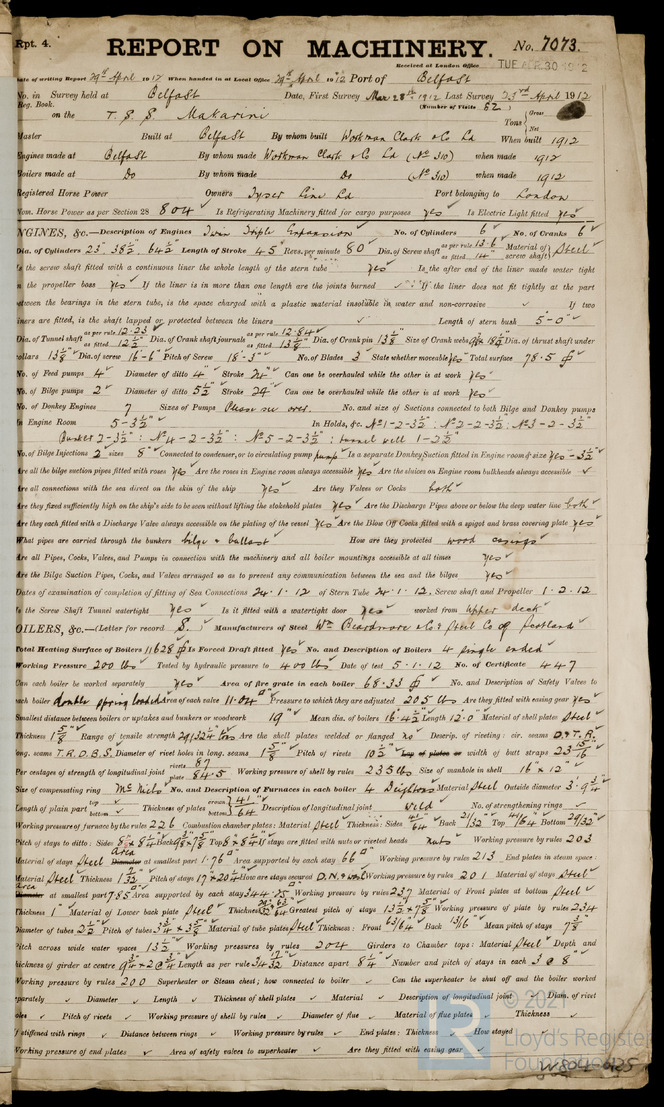 Rpt. 4.
REPORT ON MACHINERY. No. 7073.
Received at London Office TUE APR 30 1912
Date of writing Report 29th April 1912 When handed in at Local Office 29th April 1912 Port of Belfast
No. in Survey held at Belfast Date, First Survey Mar 28th 1912 Last Survey 23rd April 1912
Reg. Book. (Number of Visits 52)
on the T. S. S. Makarini Tons Gross Net
Master Built at Belfast By whom built Workman Clark & Co Ld When built 1912
Engines made at Belfast By whom made Workman Clark & Co Ld (No 310) when made 1912
Boilers made at Do By whom made Do (No 310) when made 1912
Registered Horse Power Owners Tyser Line Ld Port belonging to London
Nom. Horse Power as per Section 28 804 Is Refrigerating Machinery fitted for cargo purposes yes Is Electric Light fitted yes
NGINES, &c.—Description of Engines Twin Triple Expansion No. of Cylinders 6 No. of Cranks 6
Dia. of Cylinders 23" 38½ 64½ Length of Stroke 45 Revs. per minute 80 Dia. of Screw shaft as per rule 13.6 as fitted 14" Material of screw shaft Steel
Is the screw shaft fitted with a continuous liner the whole length of the stern tube yes Is the after end of the liner made water tight
in the propeller boss yes If the liner is in more than one length are the joints burned If the liner does not fit tightly at the part
between the bearings in the stern tube, is the space charged with a plastic material insoluble in water and non-corrosive If two
liners are fitted, is the shaft lapped or protected between the liners Length of stern bush 5'-0"
Dia. of Tunnel shaft as per rule 12.23 as fitted 12½ Dia. of Crank shaft journals as per rule 12.84 as fitted 13⅛ Dia. of Crank pin 13⅛ Size of Crank webs Dia. of thrust shaft under
collars 13⅛ Dia. of screw 16-6 Pitch of Screw 18-3 No. of Blades 3 State whether moveable yes Total surface 78.5
No. of Feed pumps 4 Diameter of ditto 4" Stroke 24" Can one be overhauled while the other is at work yes
No. of Bilge pumps 2 Diameter of ditto 5½ Stroke 24 Can one be overhauled while the other is at work yes
No. of Donkey Engines 7 Sizes of Pumps Please see over. No. and size of Suctions connected to both Bilge and Donkey pumps
In Engine Room 5-3½" In Holds, &c. No1-2-3½ : No2-2-3½ : No3-2-3½
Bunker 2-3½ : No4-2-3½ : No5-2-3½ : tunnel well 1-2½
No. of Bilge Injections 2 sizes 8" Connected to condenser, or to circulating pump pump Is a separate Donkey Suction fitted in Engine room & size yes-3½
Are all the bilge suction pipes fitted with roses yes Are the roses in Engine room always accessible yes Are the sluices on Engine room bulkheads always accessible
Are all connections with the sea direct on the skin of the ship yes Are they Valves or Cocks both
Are they fixed sufficiently high on the ship's side to be seen without lifting the stokehold plates yes Are the Discharge Pipes above or below the deep water line both
Are they each fitted with a Discharge Valve always accessible on the plating of the vessel yes Are the Blow Off Cocks fitted with a spigot and brass covering plate yes
What pipes are carried through the bunkers bilge & ballast How are they protected wood casings
Are all Pipes, Cocks, Valves, and Pumps in connection with the machinery and all boiler mountings accessible at all times yes
Are the Bilge Suction Pipes, Cocks, and Valves arranged so as to prevent any communication between the sea and the bilges yes
Dates of examination of completion of fitting of Sea Connections 24.1.12 of Stern Tube 24.1.12. Screw shaft and Propeller 1.2.12
Is the Screw Shaft Tunnel watertight yes Is it fitted with a watertight door yes worked from upper deck
OILERS, &c.—(Letter for record S.) Manufacturers of Steel Wm Beardmore & Co & Steel Co of Scotland
Total Heating Surface of Boilers 11628 Is Forced Draft fitted yes No. and Description of Boilers 4 single ended
Working Pressure 200 lbs Tested by hydraulic pressure to 400 lbs Date of test 5.1.12 No. of Certificate 447
Can each boiler be worked separately yes Area of fire grate in each boiler 68.33 No. and Description of Safety Valves to
each boiler double spring loaded Area of each valve 11.04 Pressure to which they are adjusted 205 lbs Are they fitted with easing gear yes
Smallest distance between boilers or uptakes and bunkers or woodwork 19" Mean dia. of boilers 16-4½ Length 12.0 Material of shell plates Steel
Thickness 1⅝ Range of tensile strength Are the shell plates welded or flanged no Descrip. of riveting: cir. seams D.&T.R.
long. seams T.R.D.B.S. Diameter of rivet holes in long. seams 1⅝ Pitch of rivets 10½ Lap of plates or width of butt straps 23 15/16
Per centages of strength of longitudinal joint rivets 87 plate 84.5 Working pressure of shell by rules 235 lbs Size of manhole in shell 16" x 12"
Size of compensating ring McNeils No. and Description of Furnaces in each boiler 4 Deightons Material Steel Outside diameter 3'-9¾
Length of plain part top bottom Thickness of plates crown bottom 41/64 Description of longitudinal joint weld No. of strengthening rings
Working pressure of furnace by the rules 226 Combustion chamber plates: Material Steel Thickness: Sides 41/64 Back 21/32 Top 41/64 Bottom 29/32
Pitch of stays to ditto: Sides Back Top If stays are fitted with nuts or riveted heads nuts Working pressure by rules 203
Material of stays Steel Area at smallest part 1.76 Area supported by each stay 66 Working pressure by rules 213 End plates in steam space:
Material Steel Thickness Pitch of stays How are stays secured D.N. & Working pressure by rules 201 Material of stays Steel
Area at smallest part 7.85 Area supported by each stay 344.25 Working pressure by rules 237 Material of Front plates at bottom Steel
Thickness 1" Material of Lower back plate Steel Thickness Greatest pitch of stays 13½ x 7⅞ Working pressure of plate by rules 234
Diameter of tubes 2½ Pitch of tubes 3¾ x 3⅝ Material of tube plates Steel Thickness: Front 63/64 Back 13/16 Mean pitch of stays 7⅞
Pitch across wide water spaces 13½ Working pressures by rules 204 Girders to Chamber tops: Material Steel Depth and
thickness of girder at centre Length as per rule Distance apart 8¼ Number and pitch of stays in each 3 @ 8"
Working pressure by rules 200 Superheater or Steam chest; how connected to boiler Can the superheater be shut off and the boiler worked
separately Diameter Length Thickness of shell plates Material Description of longitudinal joint Diam. of rivet
holes Pitch of rivets Working pressure of shell by rules Diameter of flue Material of flue plates Thickness
If stiffened with rings Distance between rings Working pressure by rules End plates: Thickness How stayed
Working pressure of end plates Area of safety valves to superheater Are they fitted with easing gear
© 2021
Lloyd's Register
Foundation
W804-0125